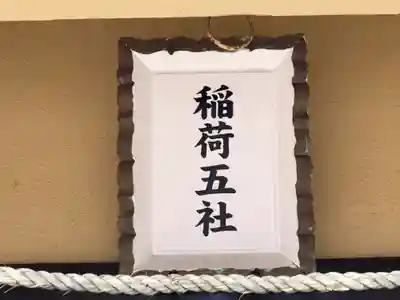 稲荷五社